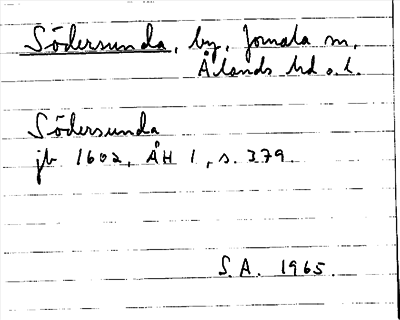 Södersunda, by, Jomala sn,
Ålands hd o. l.
Södersunda
jb 1602, ÅH 1, s. 379.
S.A. 1965.